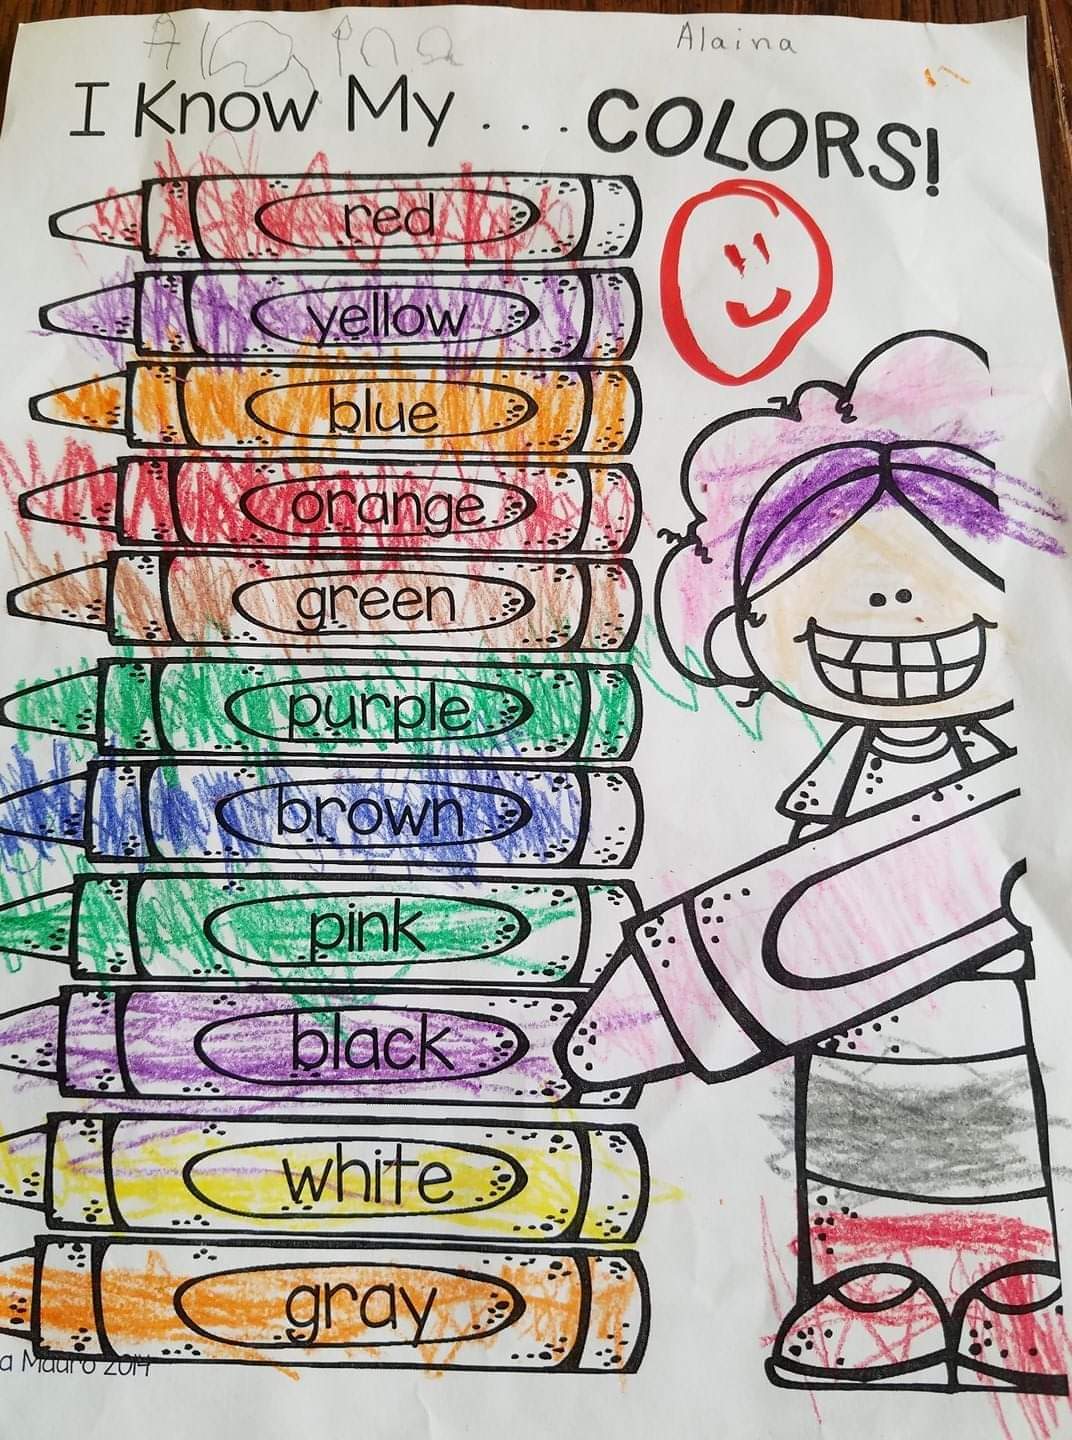 Alaina Alaina
I Know My ... COLORS!
red
yellow
blue
orange
green
purple
brown
pink
black
white
gray
a Mauro 2014